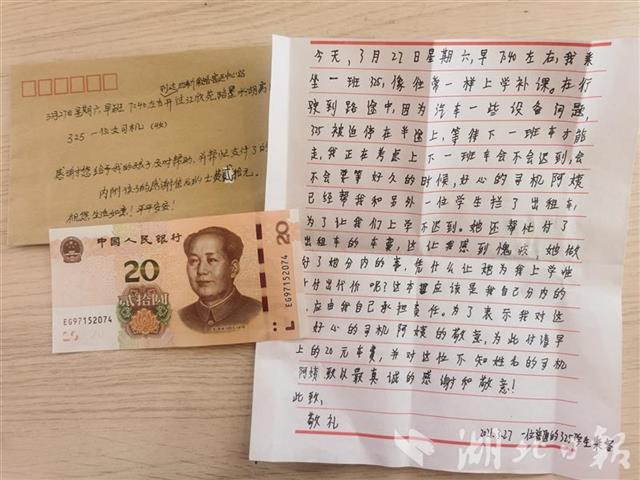 3月27日星期六早班7:40左右开过
325一位女司机(收)
感谢您给予我的孩子及时帮助,并帮忙支付了的
内附孩子的感谢信及的士费贰拾元。
祝您生活如意!平平安安!
中国人民银行
20
贰拾圆
EG97152074
20
EG97152074
今天,3月27日星期六,早7:40左右,我乘
坐一班325,像往常一样上学补课。在行
驶到路途中,因为汽车一些设备问题,
325被迫停在半途上,等待下一班车才能
走,我正在考虑上下一班车会不会迟到,会
不会要等好久的时候,好心的司机阿姨
已经帮我和另外一位学生拦了出租车,
为了让我们上学不迟到。她还帮忙付了
出租车的车费,这让我感到愧疚,她做
付了她分内的事,凭什么让她为我上学
付出代价呢?这本应该是我自己分内的
,应由我自己承担责任。为了表示我对这
好心的司机阿姨的敬意,为此付清早
上的20元车费,并对这位不知姓名的司机
阿姨致以最真诚的感谢和敬意!
此致,
敬礼
2021.3.27 一位普通的325学生乘客
湖北日报